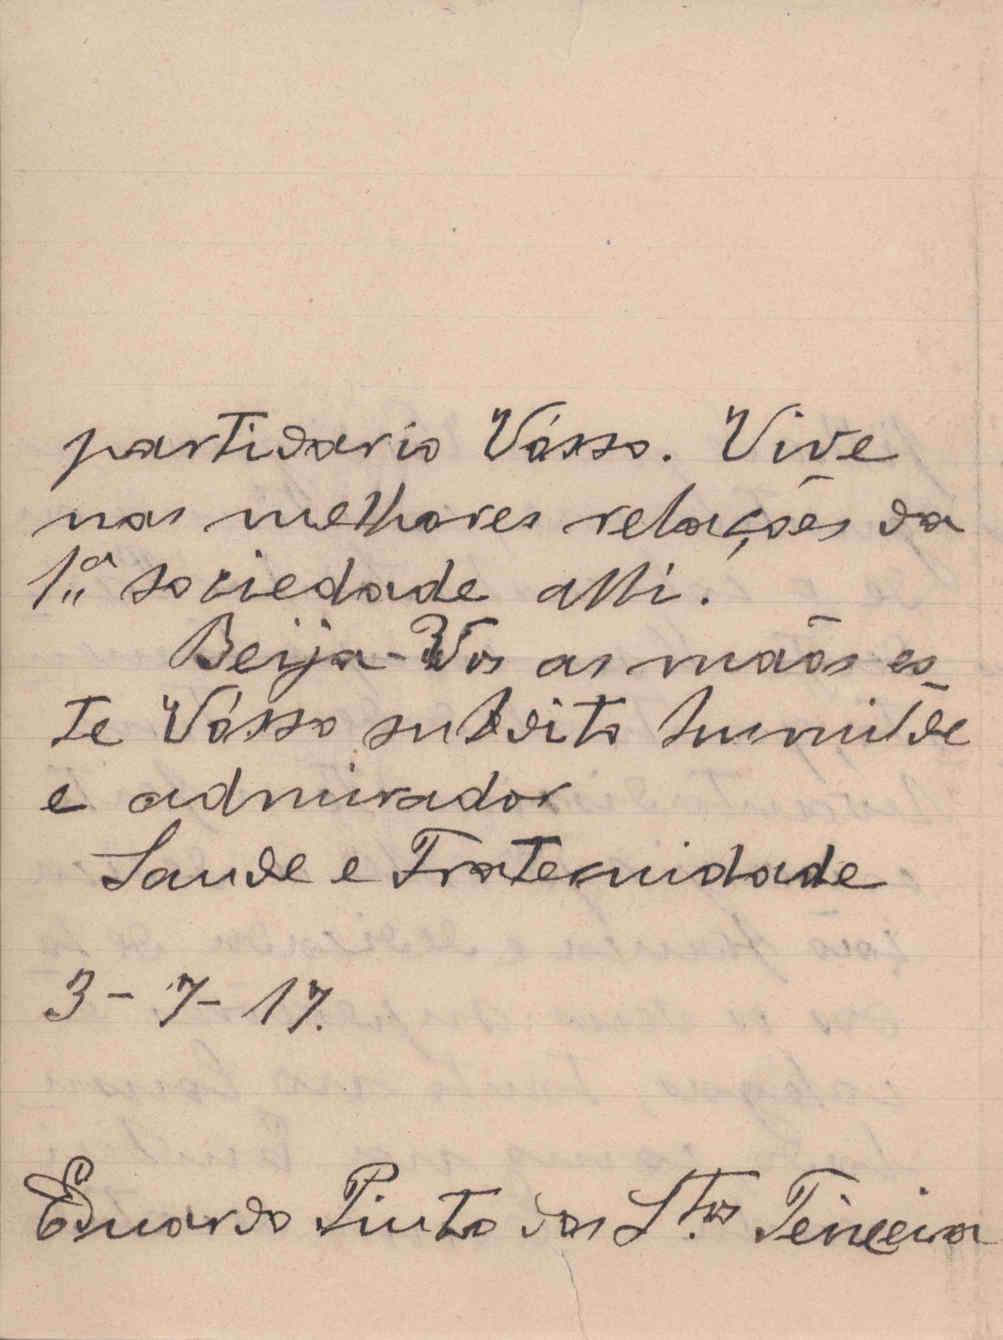 partidario Vósso. Vive
nas melhores relações da
1.ª sociedade alli.
Beija-Vos as mãos es
te Vósso subdito humilde
e admirador
Saude e Fraternidade
3-7-17.
Eduardo Pinto dos S.tos Teixeira